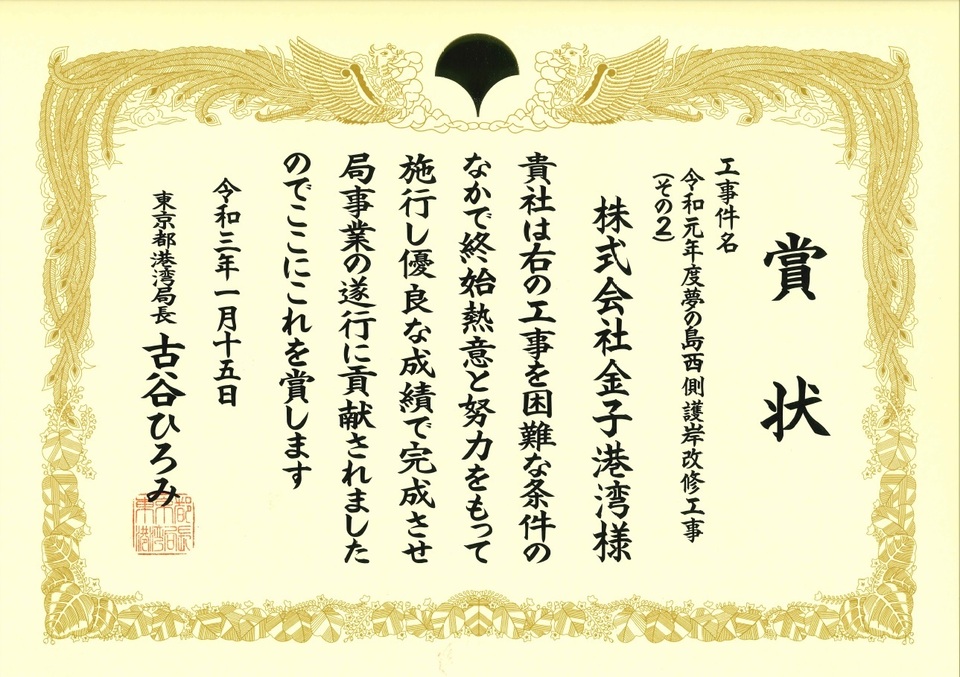 賞状
工事件名
令和元年度夢の島西側護岸改修工事
（その２）
株式会社金子港湾様
貴社は右の工事を困難な条件の
なかで終始熱意と努力をもって
施行し優良な成績で完成させ
局事業の遂行に貢献されました
のでここにこれを賞します
令和三年一月十五日
東京都港湾局長 古谷ひろみ
東京都
港湾局長